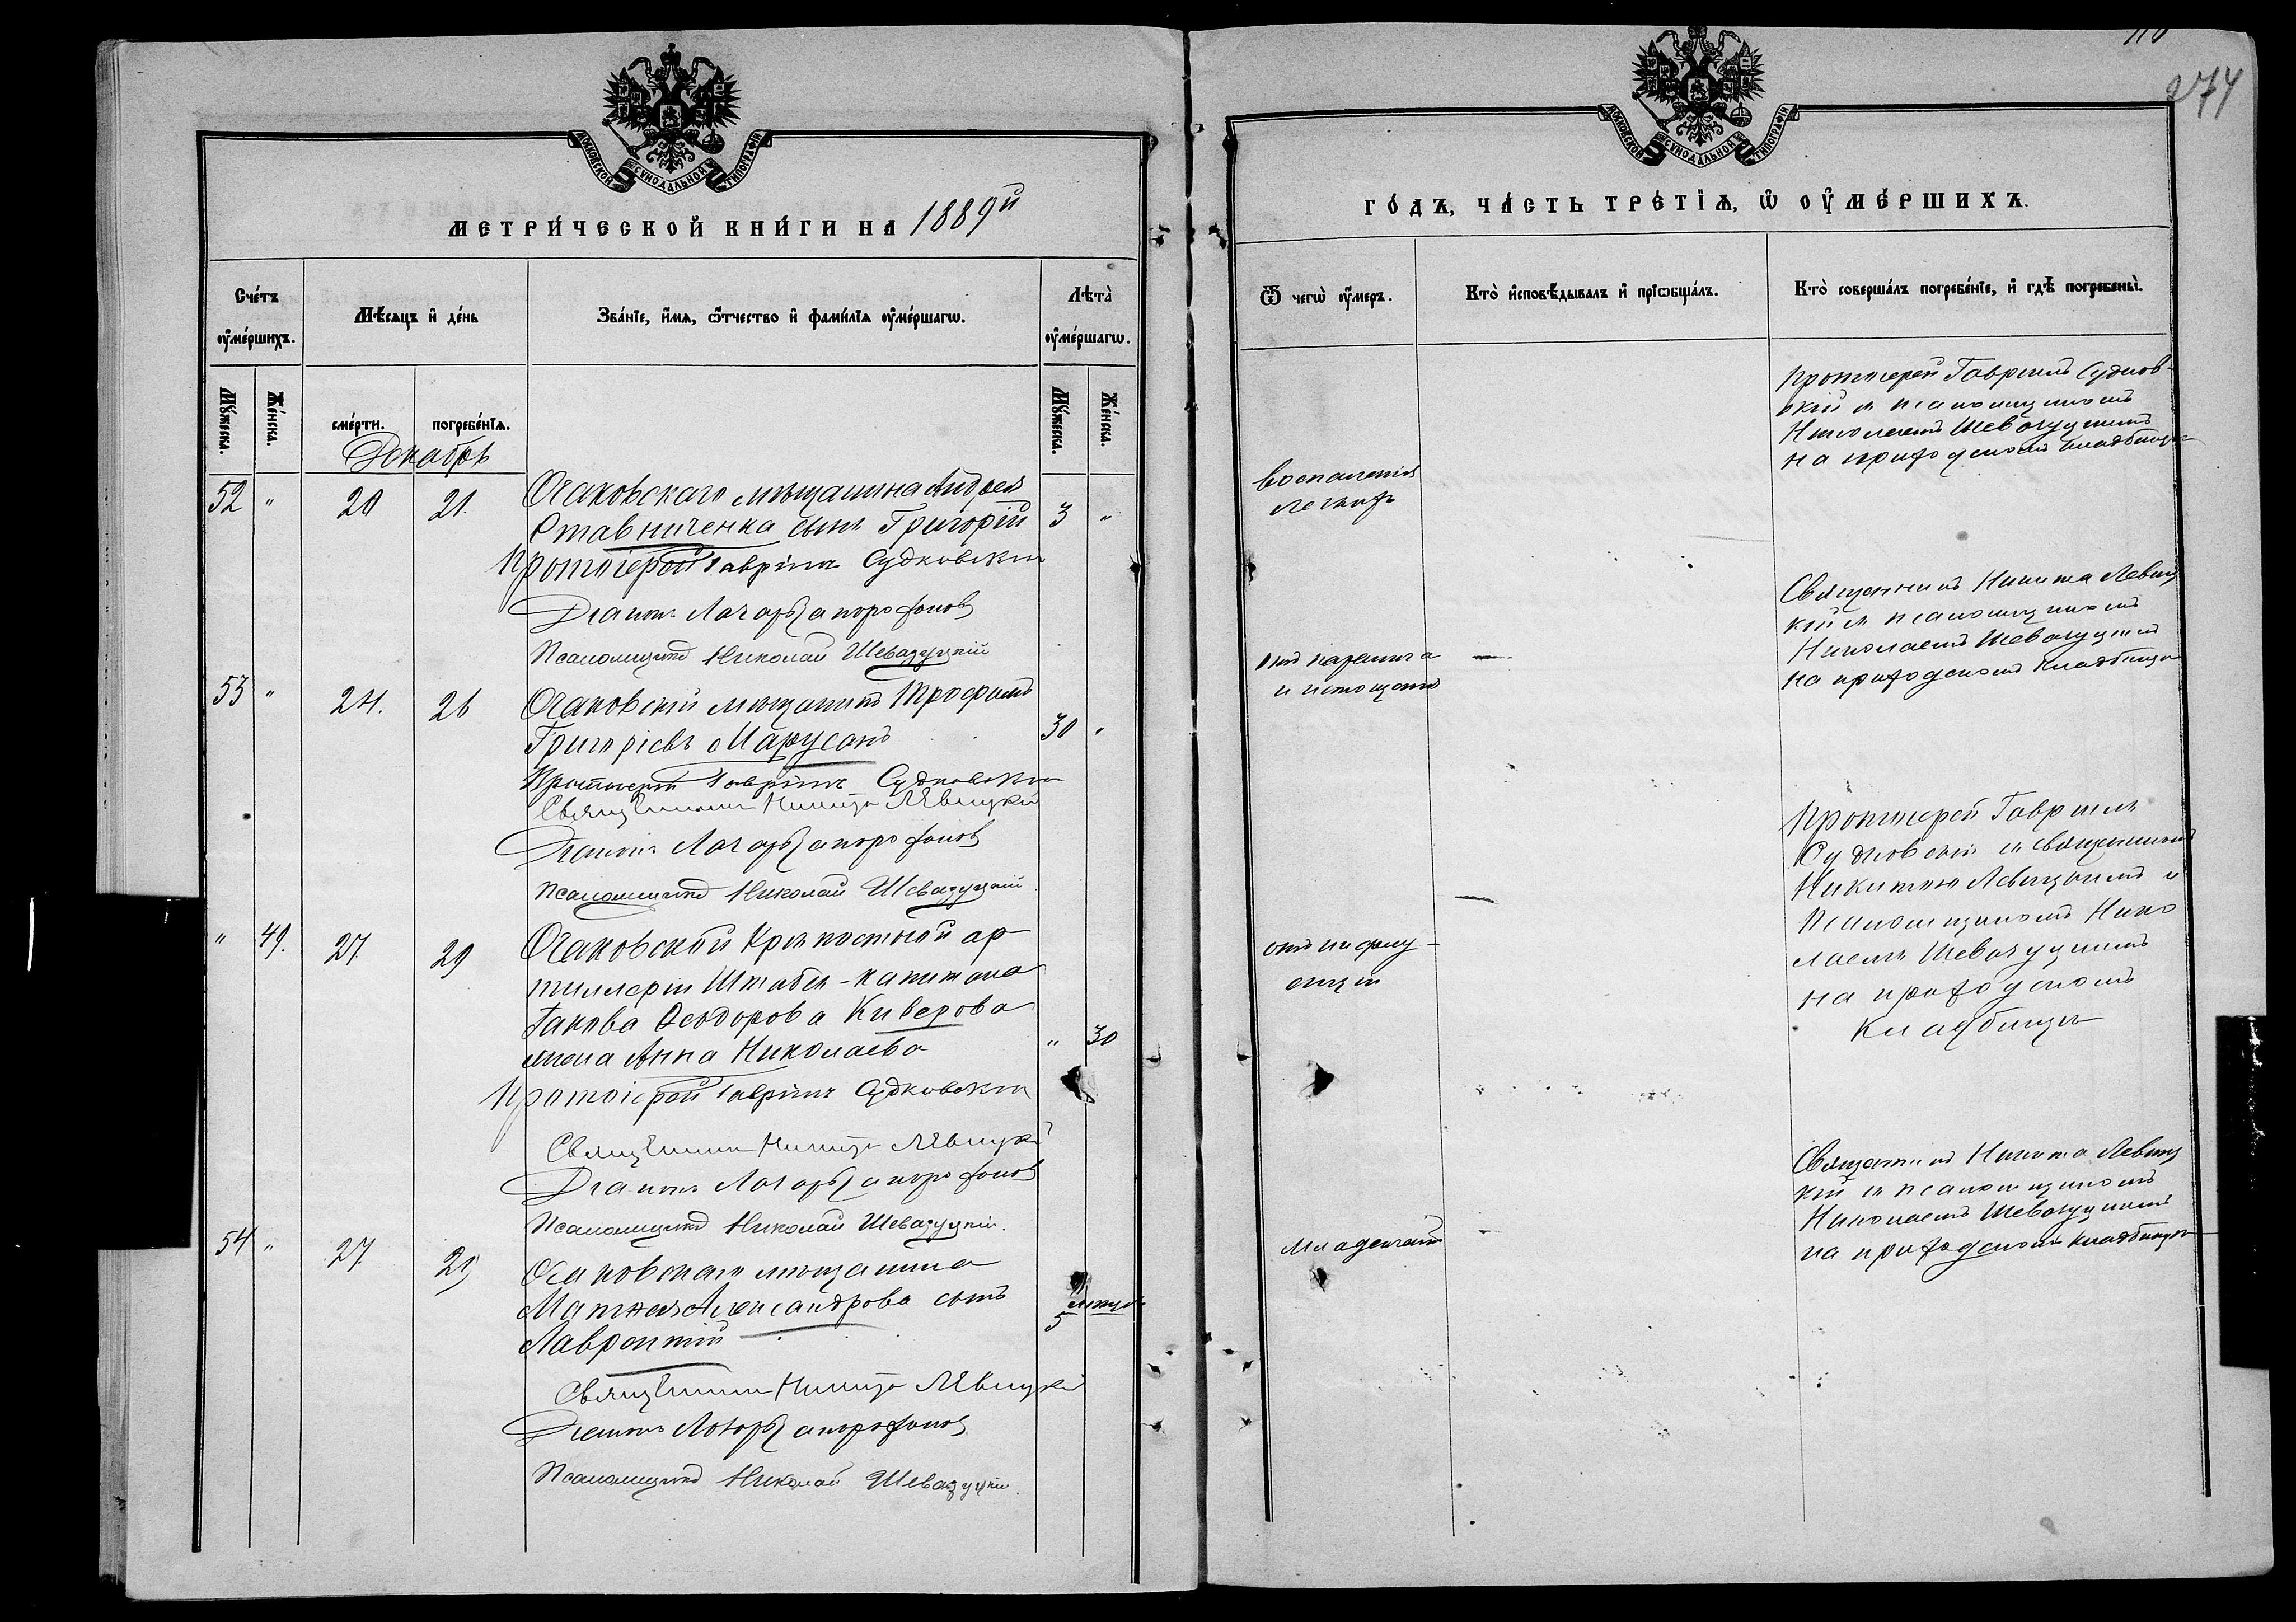 МОСКОВСКОЙ СѴНОДАЛЬНОЙ ТИПОГРАФІИ
МЕТРИ́ЧЕСКОЙ КНИ́ГИ НА 1889й
Сче́тъ ᲂу҆ме́ршихъ.
Мѣ́сѧцъ и҆ де́нь
Зва́нїе, и҆́мѧ, ѻ҆́тчество и҆ фами́лїѧ ᲂу҆ме́ршагѡ.
Лѣта̀ ᲂу҆ме́ршагѡ.
Мꙋ́жеска.
Же́нска.
сме́рти.
погребе́нїѧ.
Мꙋ́жеска.
Же́нска.
Декабрь
52 " 20 21.
Очаковскаго мѣщанина Андрея
Ставниченка сынъ Григорій 3 "
Протоіерей Гавріилъ Судковскій
Діаконъ Лазарь
Псаломщикъ Николай Шевазуцкій
53 " 24. 26 Очаковскій мѣщанинъ Трофимъ
Григоріевъ Марусанъ 30 "
Протоіерей Гавріилъ Судковскій
Священникъ Никита Левицкій
Діаконъ Лазарь
Псаломщикъ Николай Шевазуцкій
" 49. 27. 29 Очаковской Крѣпостной ар
тиллеріи Штабсъ-капитана
Іакова Ѳеодорова Киверова
жена Анна Николаева " 30
Протоіерей Гавріилъ Судковскій
Священникъ Никита Левицкій
Діаконъ Лазарь
Псаломщикъ Николай Шевазуцкій.
54 " 27. 29 Очаковскаго мѣщанина
Матѳея Александрова сынъ
Лаврентій 5
Священникъ Никита Левицкій
Діаконъ Лазарь
Псаломщикъ Николай Шевазуцкій.
274
МОСКОВСКОЙ СѴНОДАЛЬНОЙ ТИПОГРАФІИ
ГО́ДЪ, ЧА́СТЬ ТРЕ́ТЇѦ, Ѡ҆ ОУ҆МЕ́РШИХЪ.
Ѿ чегѡ̀ ᲂу҆́меръ.
Кто̀ и҆сповѣ́дывалъ и҆ прїѡбща́лъ.
Кто̀ соверша́лъ погребе́нїе, и҆ гдѣ̀ погребены̀.
воспаленія
легкихъ
Протоіерей Гавріилъ Судков-
скій съ псаломщикомъ
Николаемъ Шевазуцкимъ
на приходскомъ кладбищѣ
отъ паралича
и истощенія
—
Священникъ Никита Левиц
кій съ псаломщикомъ
Николаемъ Шевазуцкимъ
на приходскомъ кладбищѣ
—
Протоіерей Гавріилъ
Судковскій съ священникомъ
Никитою Левицкимъ и
Псаломщикомъ Нико
лаемъ Шевазуцкимъ
на приходскомъ
Кладбищѣ
Священникъ Никита Левиц
кій съ псаломщикомъ
Николаемъ Шевазуцкимъ
на приходскомъ кладбищѣ